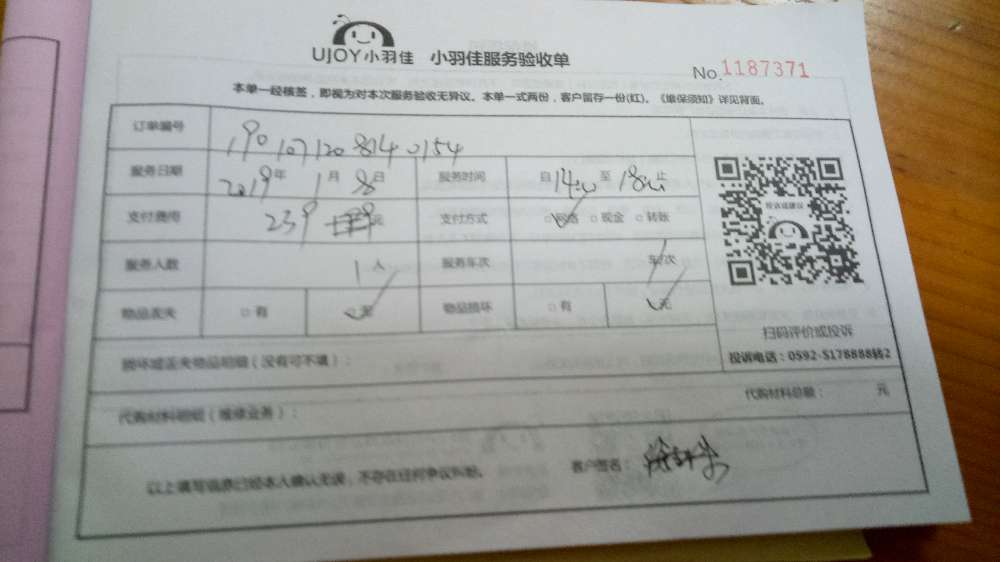 UJOY小羽佳 小羽佳服务验收单
No.1187371
本单一经核签，即视为对本次服务验收无异议。本单一式两份，客户留存一份(红)。《维保须知》详见背面。
订单编号 1901071208140154
服务日期 2019年1月8日 服务时间 自14:00至18:00止
支付费用 239 元 支付方式 □网络 □现金 □转账
服务人数 1人 服务车次 车/次
物品丢失 □有 □无 物品损坏 □有 □无
投诉或建议
扫码评价或投诉
投诉电话：0592-5178888转2
损坏或丢失物品明细（没有可不填）：
代购材料明细（维修业务）： 代购材料总额： 元
以上填写信息已经本人确认无误，不存在任何争议纠纷。 客户签名：